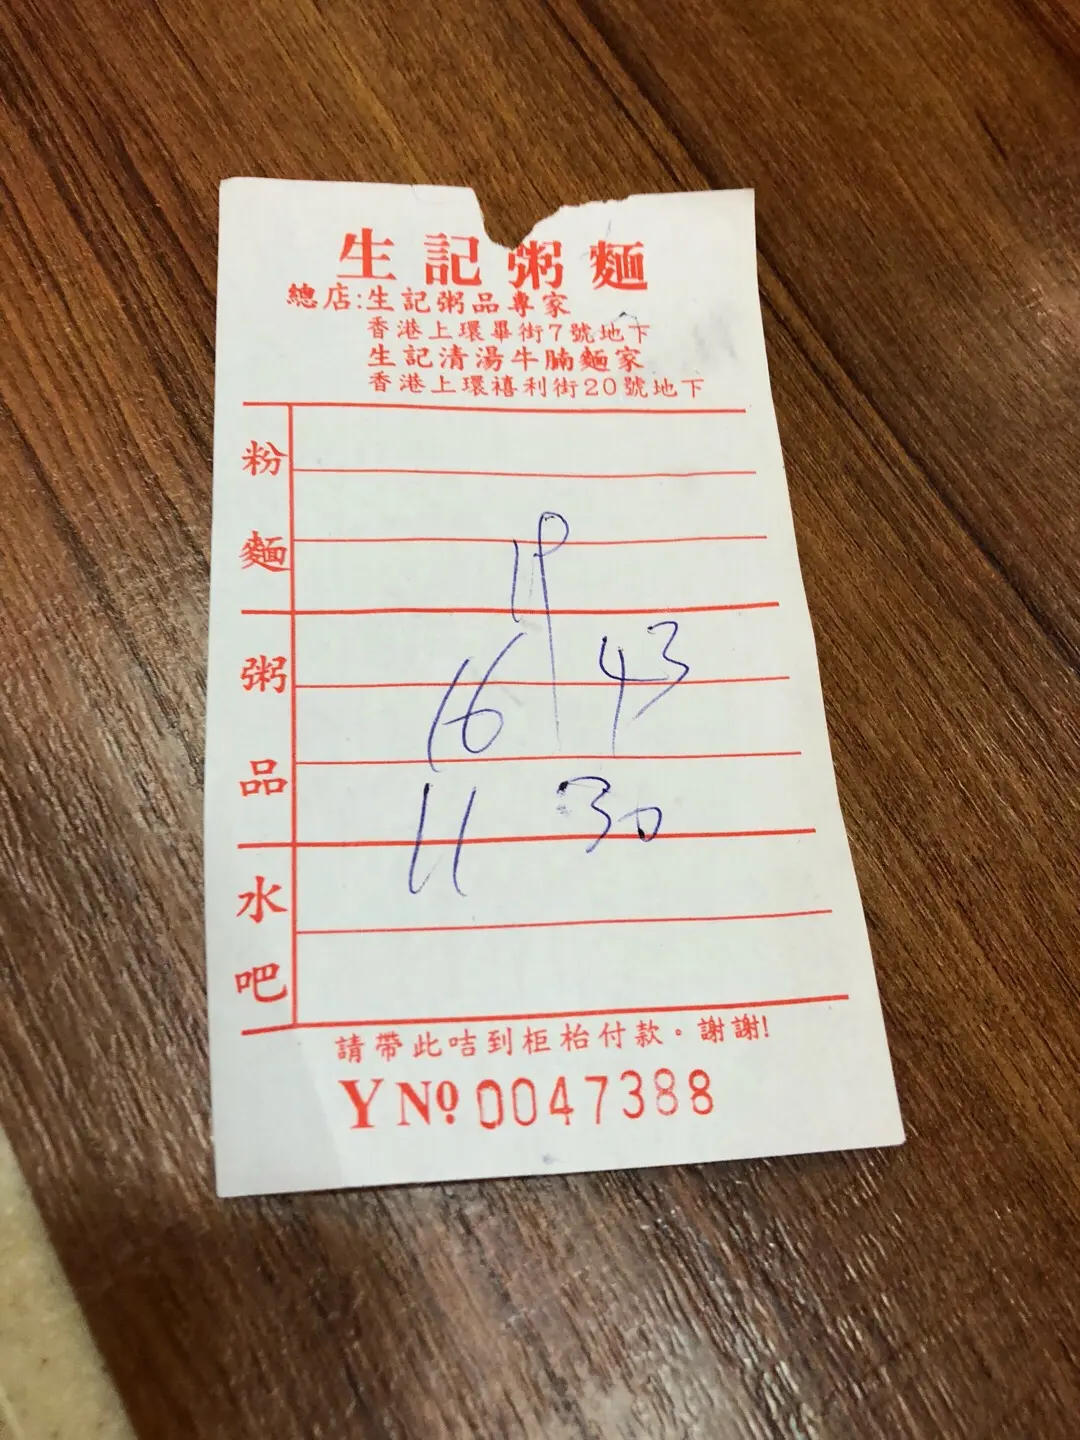 生記粥麵
總店:生記粥品專家
香港上環畢街7號地下
生記清湯牛腩麵家
香港上環禧利街20號地下
粉麵
19
粥品
16 43
11 30
水吧
請帶此咭到柜枱付款。謝謝!
Y Nº 0047388